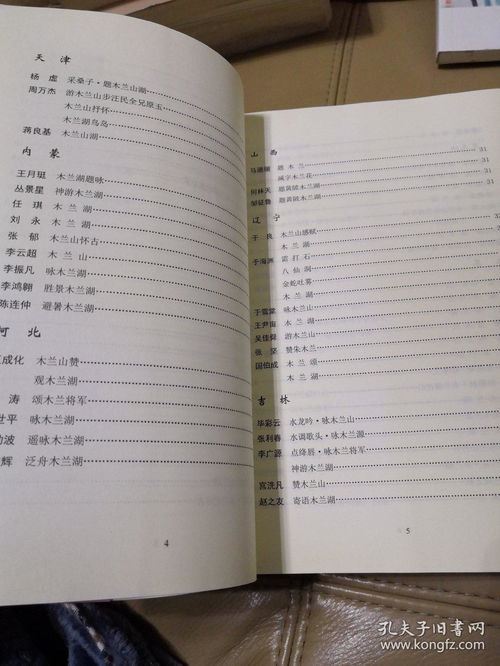 天 津
杨 虚 采桑子·题木兰山湖
周万杰 游木兰山步汪民全兄原玉
木兰山抒怀
木兰湖鸟岛
蒋良基 木兰山湖
内 蒙
王月珽 木兰湖题咏
丛景星 神游木兰湖
任 琪 木 兰 湖
刘 永 木 兰 湖
张 郁 木兰山怀古
李云超 木 兰 山
李振凡 咏木兰湖
李鸿翱 胜景木兰湖
陈连仲 避暑木兰湖
河 北
成化 木兰山赞
观木兰湖
涛 颂木兰将军
世平 咏木兰湖
波 遥咏木兰湖
辉 泛舟木兰湖
4
山 西
题 木 兰 31
减字木兰花 31
何林天 题黄陂木兰湖 31
邹征鲁 题黄陂木兰湖
辽 宁
于 良 木兰山感赋
木 兰 湖
于海洲 雷 打 石
八 仙 洞
金蛇吐雾
木 兰 湖
于雪棠 咏木兰山
王尹宙 木 兰 湖
吴佳保 游木兰山
张 坚 赞朱木兰
国伯成 木 兰 颂
木 兰 湖
吉 林
毕彩云 水龙吟·咏木兰山
张利春 水调歌头·咏木兰源
李广源 点绛唇·咏木兰将军
神游木兰湖
宫洗凡 赞木兰山
赵之友 寄语木兰湖
5
孔夫子旧书网
www.kongfz.com